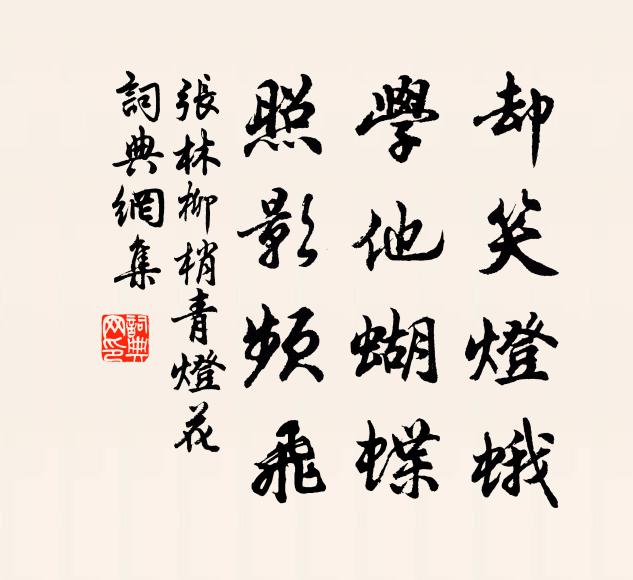 却笑燈蛾
學他蝴蝶
照影頻飛
張林柳梢青燈花
詞典網集
詞典
网印